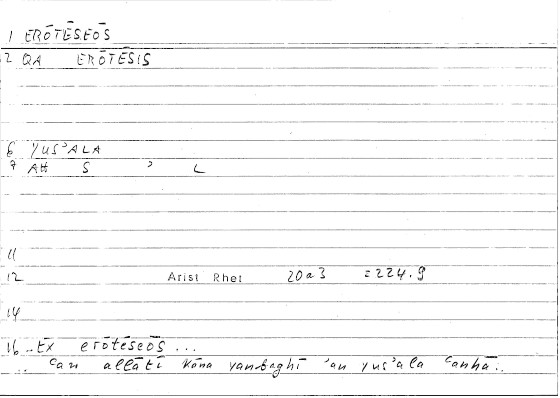 1 ERŌTĒSEŌS
2 QA ERŌTĒSIS
6 YUSʾALA
7 AH S ʾ L
11
12 Arist Rhet 20a3 =224.9
14
16 ..Ex erōtēseōs ...
.. ʿan allātī kāna yanbaghī ʾan yusʾala ʿanhā..